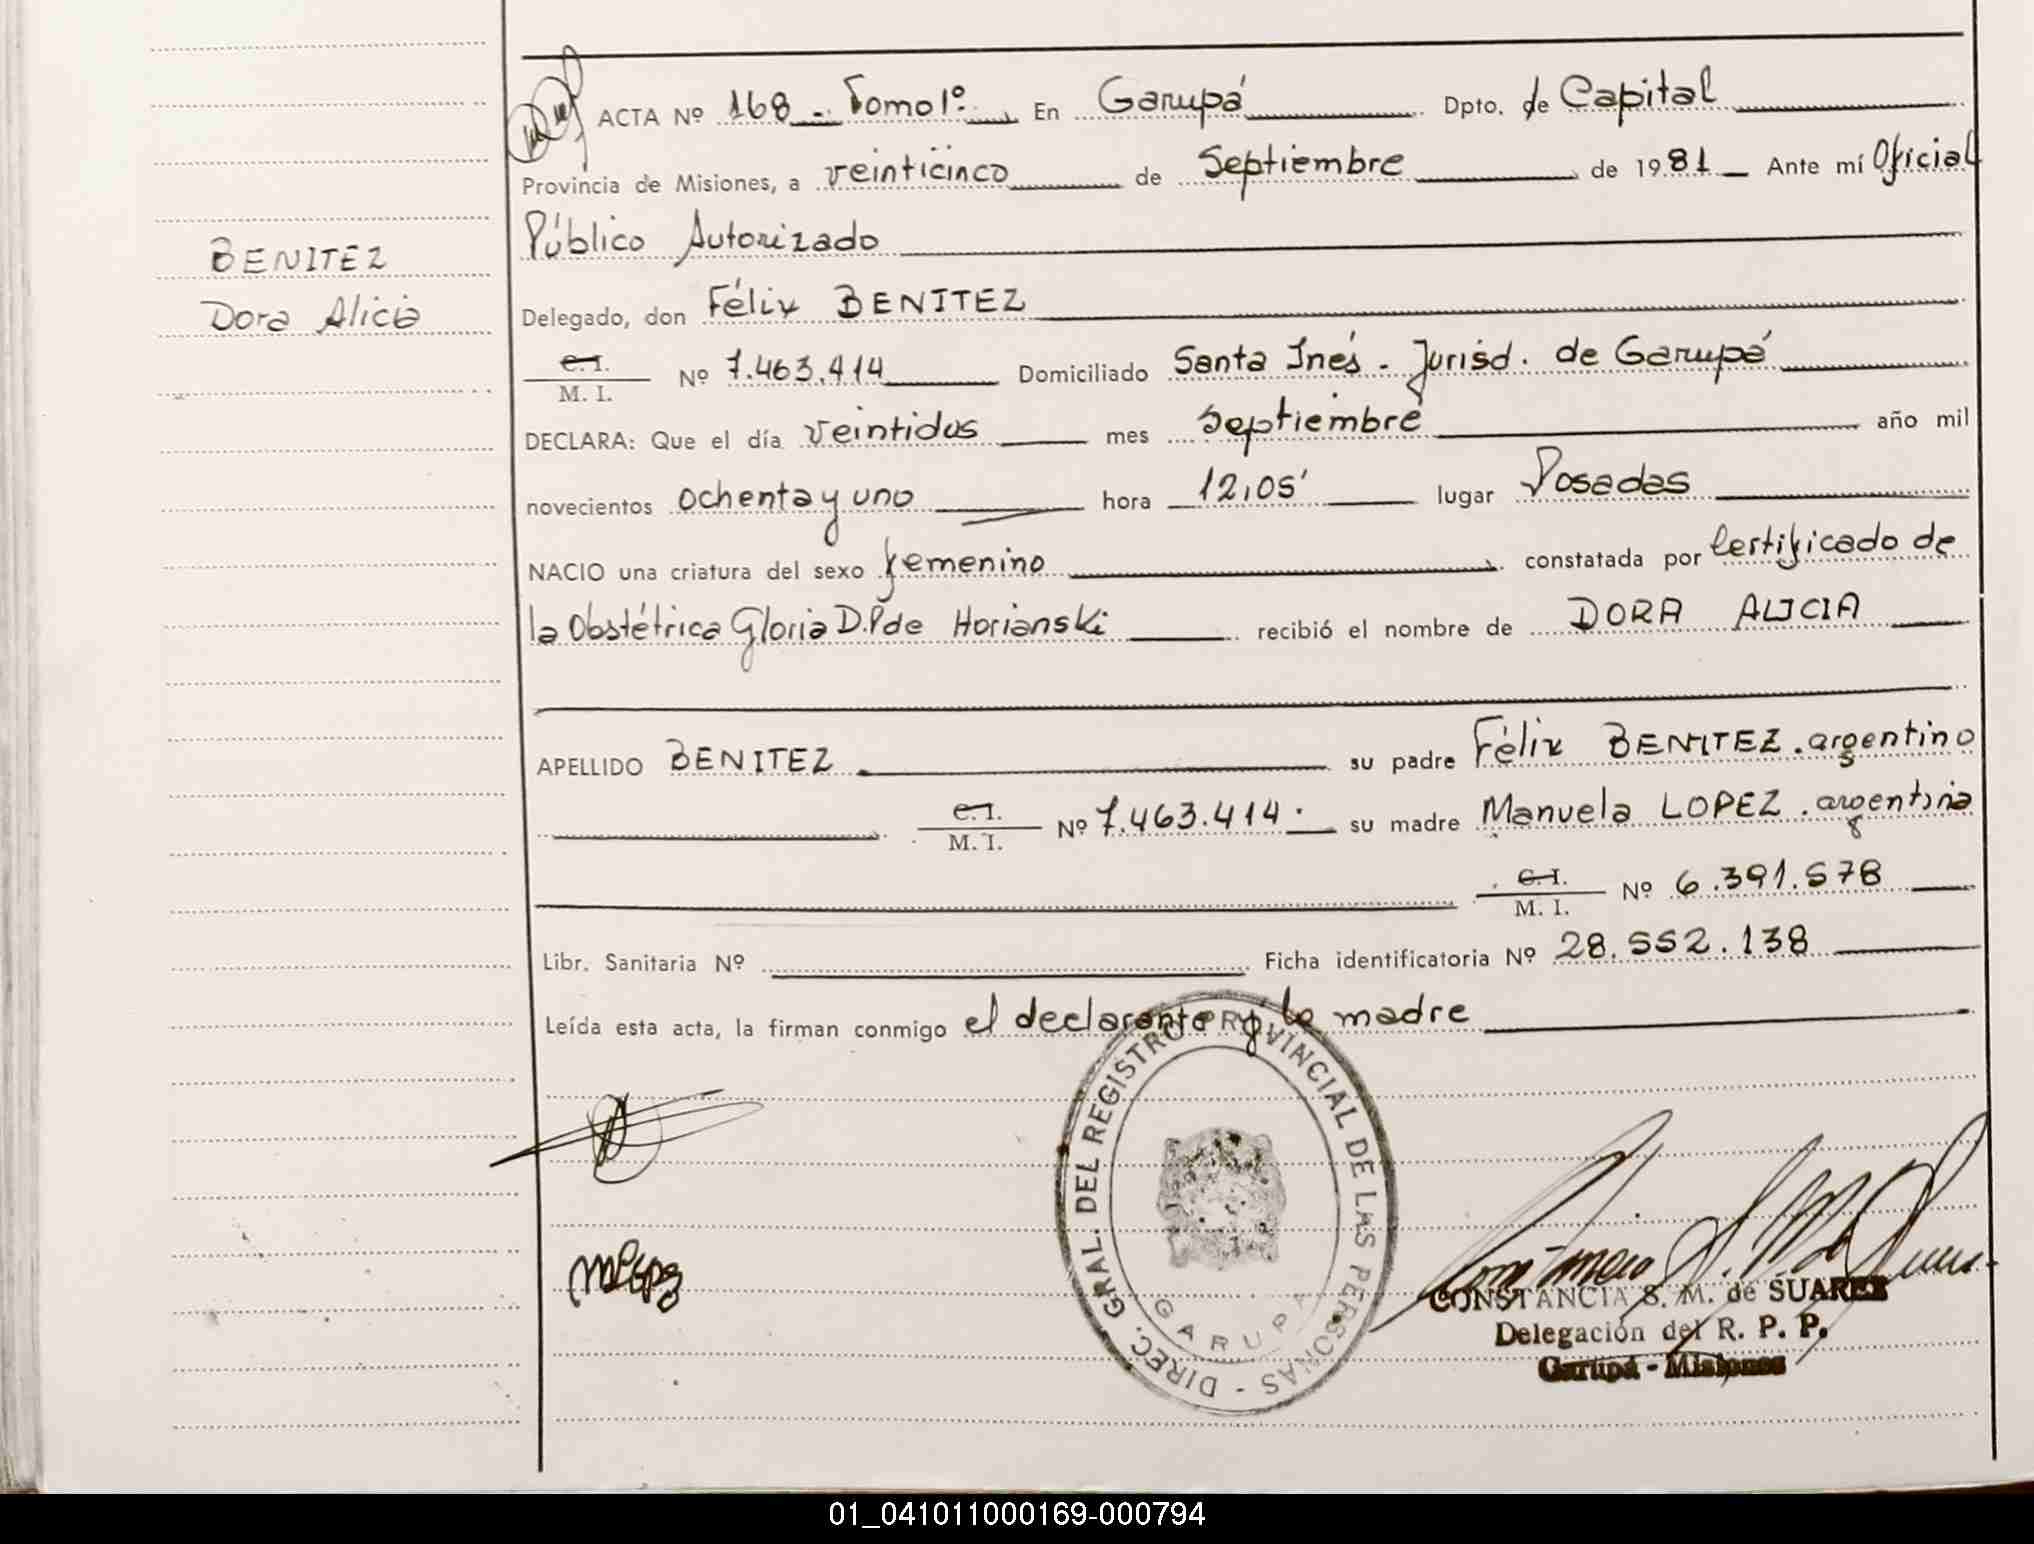 ACTA Nº 168 - Tomo 1º. En Garupá Dpto. de Capital
Provincia de Misiones, a veinticinco de Septiembre de 1981 Ante mí Oficial
Público Autorizado
BENITEZ
Dora Alicia
Delegado, don Félix BENITEZ
C.I.
M. I. Nº 7.463.414 Domiciliado Santa Inés - Jurisd. de Garupá
DECLARA: Que el día veintidus mes septiembre año mil
novecientos ochenta y uno hora 12,05' lugar Posadas
NACIO una criatura del sexo femenino constatada por Certificado de
la Obstétrica Gloria D.P de Horianski recibió el nombre de DORA ALICIA
APELLIDO BENITEZ su padre Félix BENITEZ. argentino
C.I.
M. I. Nº 7.463.414. su madre Manuela LOPEZ. argentina
C.I.
M. I. Nº 6.391.578
Libr. Sanitaria Nº Ficha identificatoria Nº 28.552.138
Leída esta acta, la firman conmigo el declarante y la madre
DIREC. GRAL. DEL REGISTRO PROVINCIAL DE LAS PERSONAS -
GARUPA
CONSTANCIA S. M. de SUAREZ
Delegación del R. P. P.
Garupá - Misiones
01_041011000169-000794